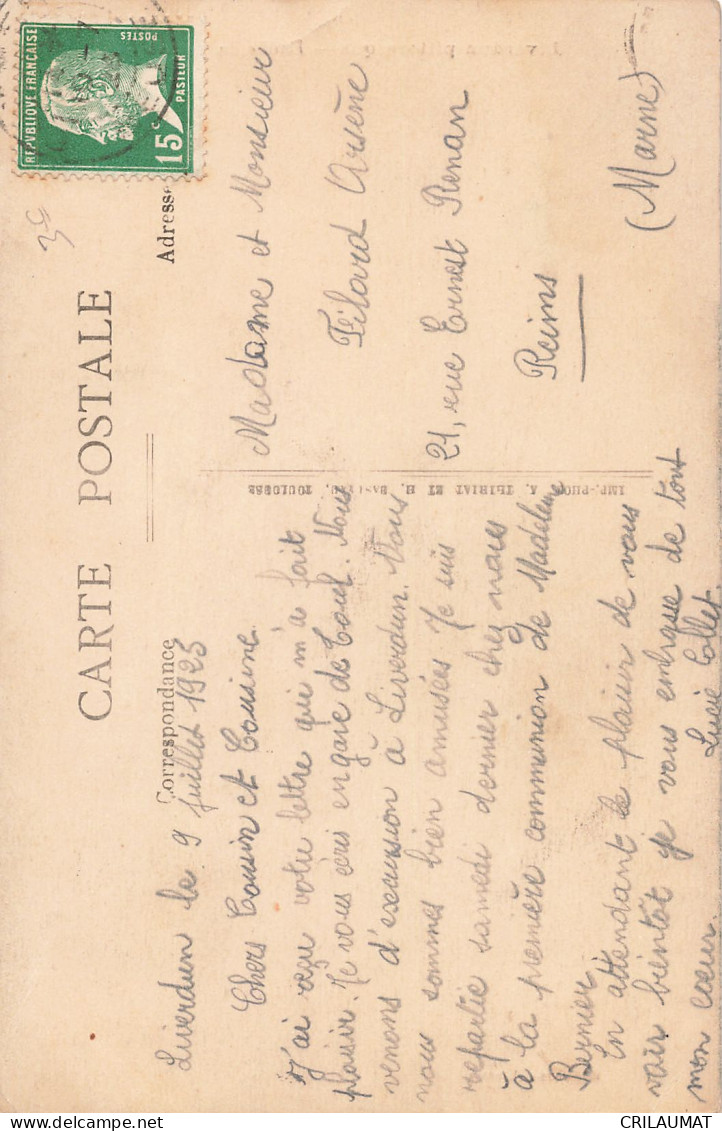 CARTE POSTALE
Correspondance
Adresse
REPUBLIQUE FRANÇAISE
POSTES
15c
PASTEUR
Liverdun le 9 juillet 1925
Chers Cousin et Cousine
J'ai reçu votre lettre qui m'a fait
plaisir. Je vous écris en gare de Toul. Nous
venons d'excursion à Liverdun. Nous
nous sommes bien amusées Je suis
repartie samedi dernier chez nous
à la première communion de Madeleine
Beynier
En attendant le plaisir de vous
voir bientôt je vous embrasse de tout
mon cœur. Lucie Collet
Madame et Monsieur
Filard Arsène
21, rue Ernest Renan
Reims
(Marne)
IMP.-PHOT. A. THIRIAT ET H. TOULOUSE
CRILAUMAT